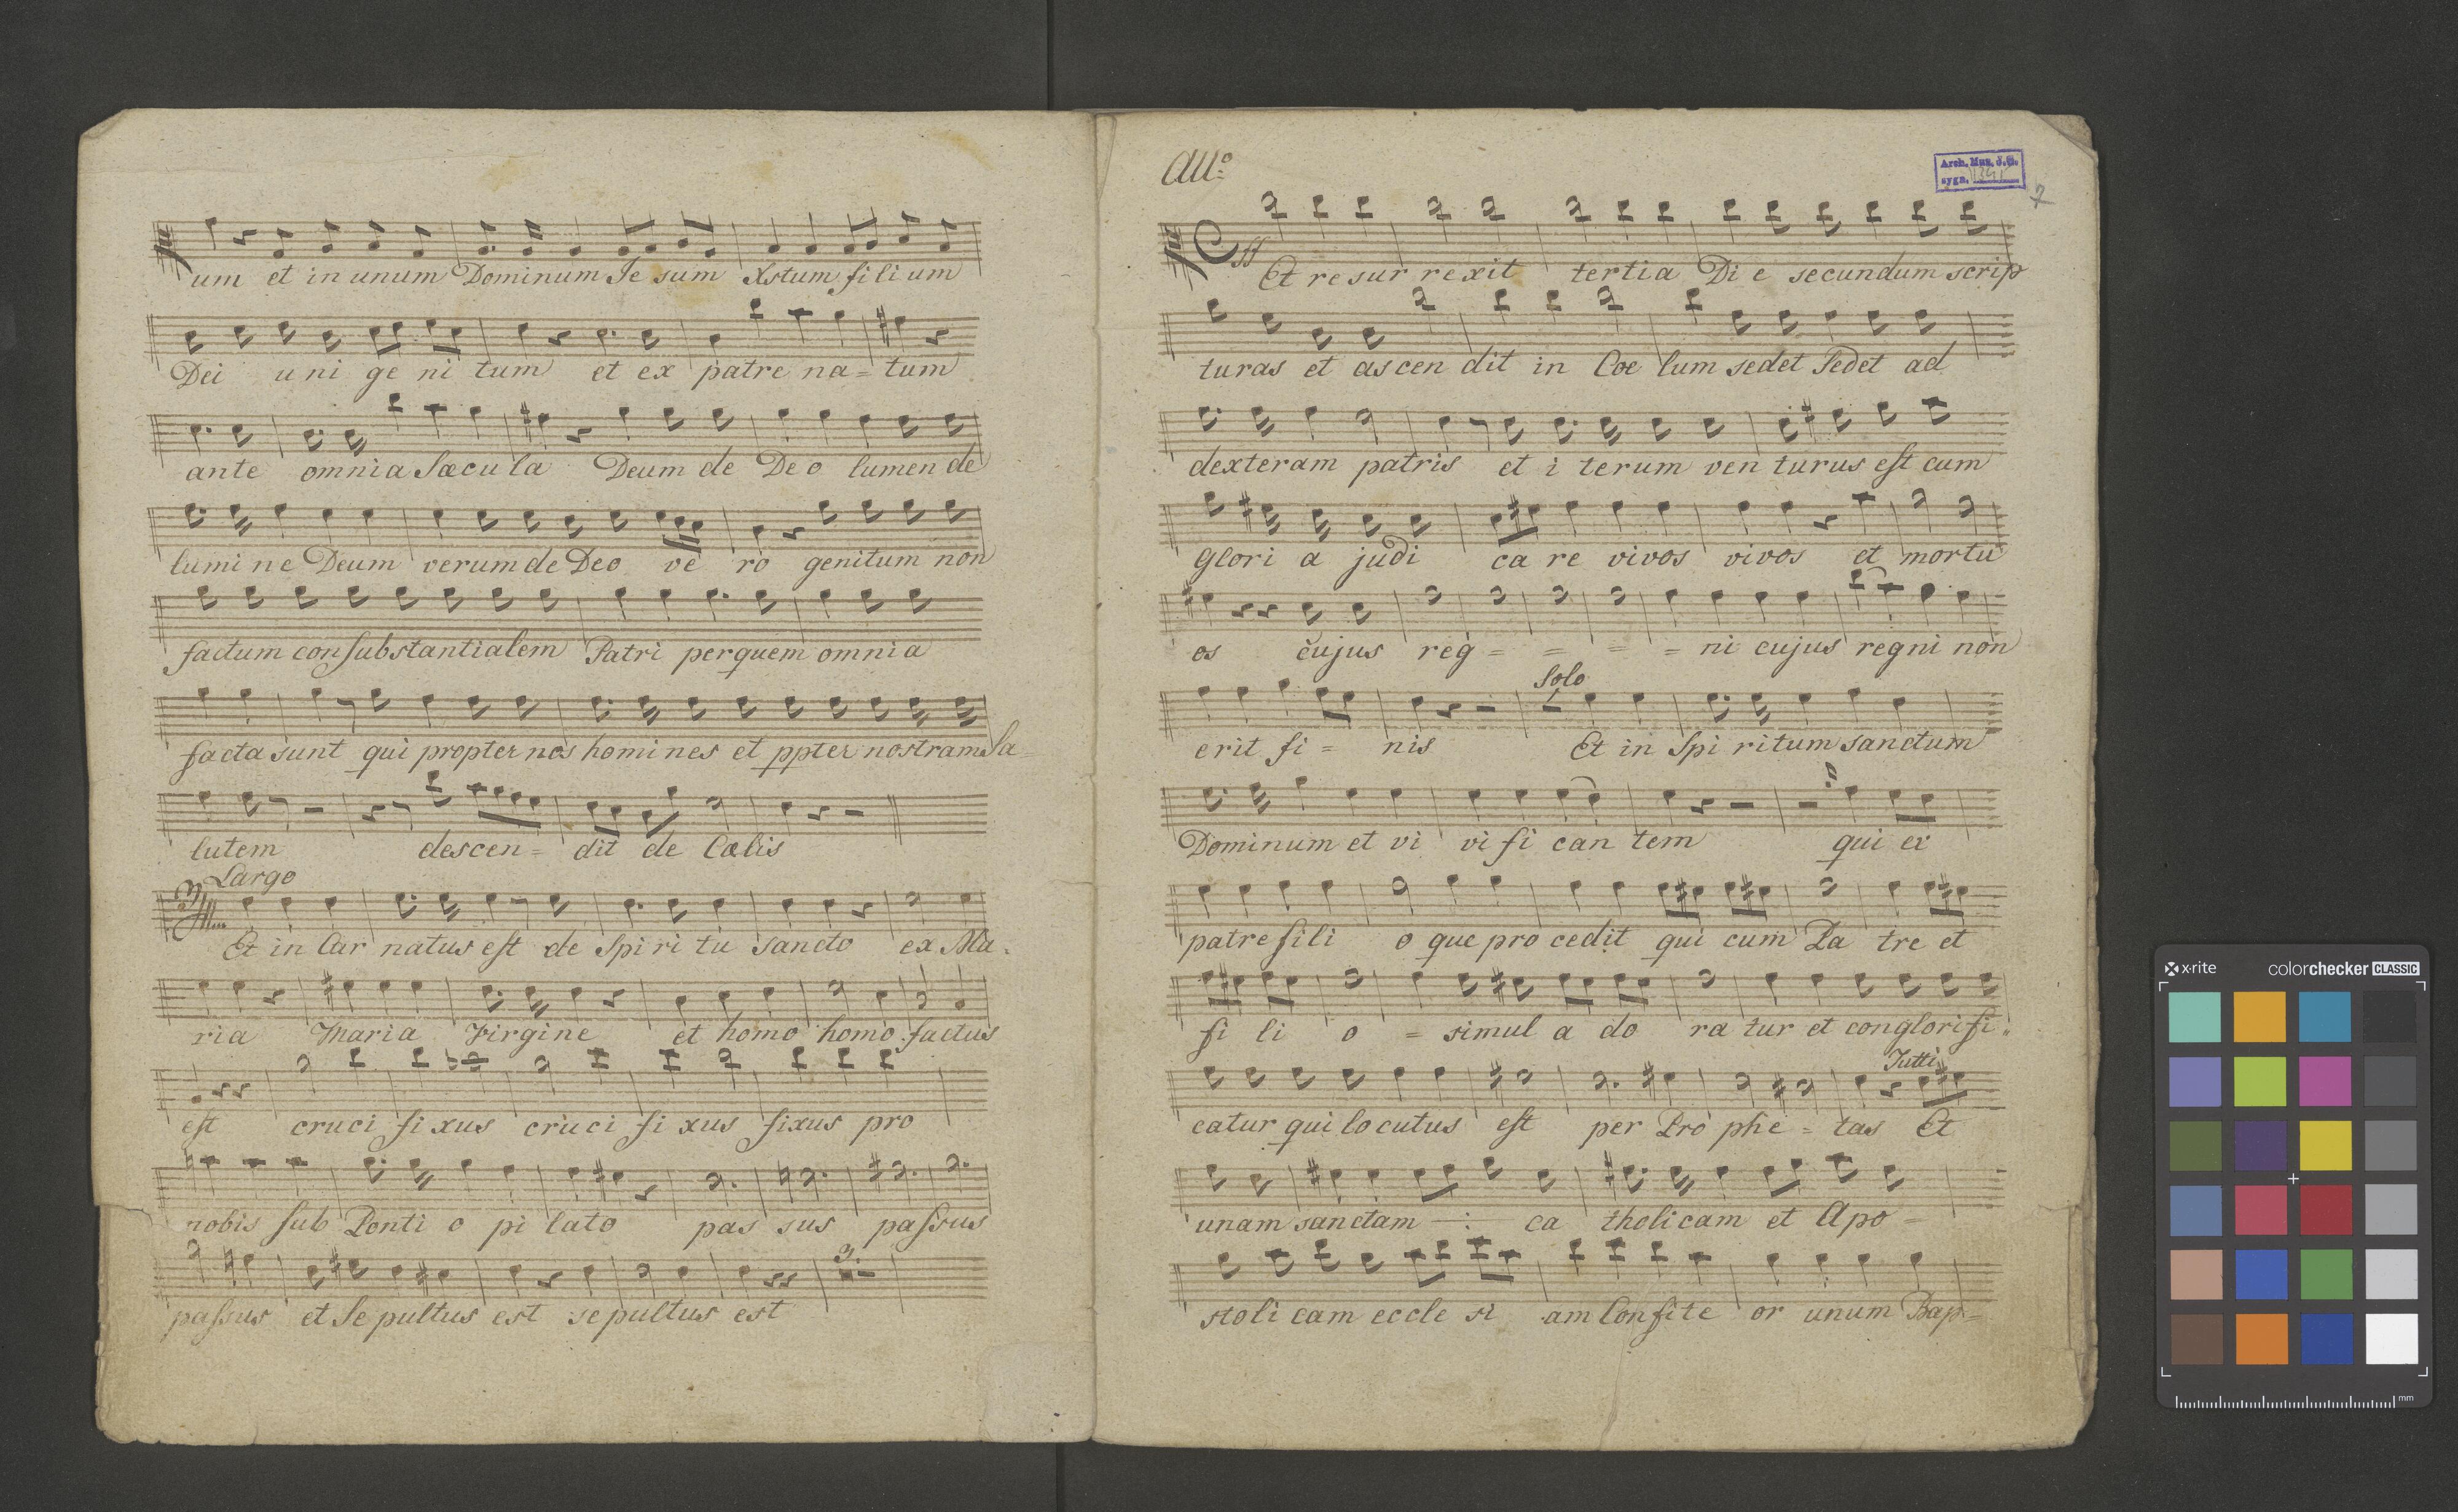 um et in unum Dominum Je sum Xstum fi li um
Dei u ni ge ni tum et ex patre na= tum
ante omnia Sæcu la Deum de De o lumen de
lumi ne Deum verum de Deo ve ro genitum non
factum con substantialem Patri per quem omni a
facta sunt qui propter nos homi nes et ppter nostram Sa
lutem descen= dit de Cœlis
Largo
Et in Car natus est de Spi ri tu sancto ex Ma=
ria Maria Virgine et homo homo factus
est cruci fi xus cruci fi xus fixus pro
nobis sub Ponti o pi lato pas sus passus
passus et Se pultus est se pultus est
All:o
Arch. Mus. J.G.
sygn.
7
ff
Et re sur rexit tertia Di e secundum scrip
turas et as cen dit in Coe lum sedet Sedet ad
dexteram patris et i terum ven turus est cum
Glori a judi ca re vivos vivos et mortu
os cujus reg = = = = ni cujus regni non
Solo
erit fi = nis Et in Spi ritum sanctum
Dominum et vi vi fi can tem qui ex
patre fili o que pro cedit qui cum Pa tre et
fi li o = simul a do ra tur et conglorifi=
Tutti
catur qui lo cutus est per Pro phe = tas Et
unam sanctam ca tholicam et Apo =
stoli cam eccle si am Confite or unum Bap=
x-rite colorchecker CLASSIC
mm